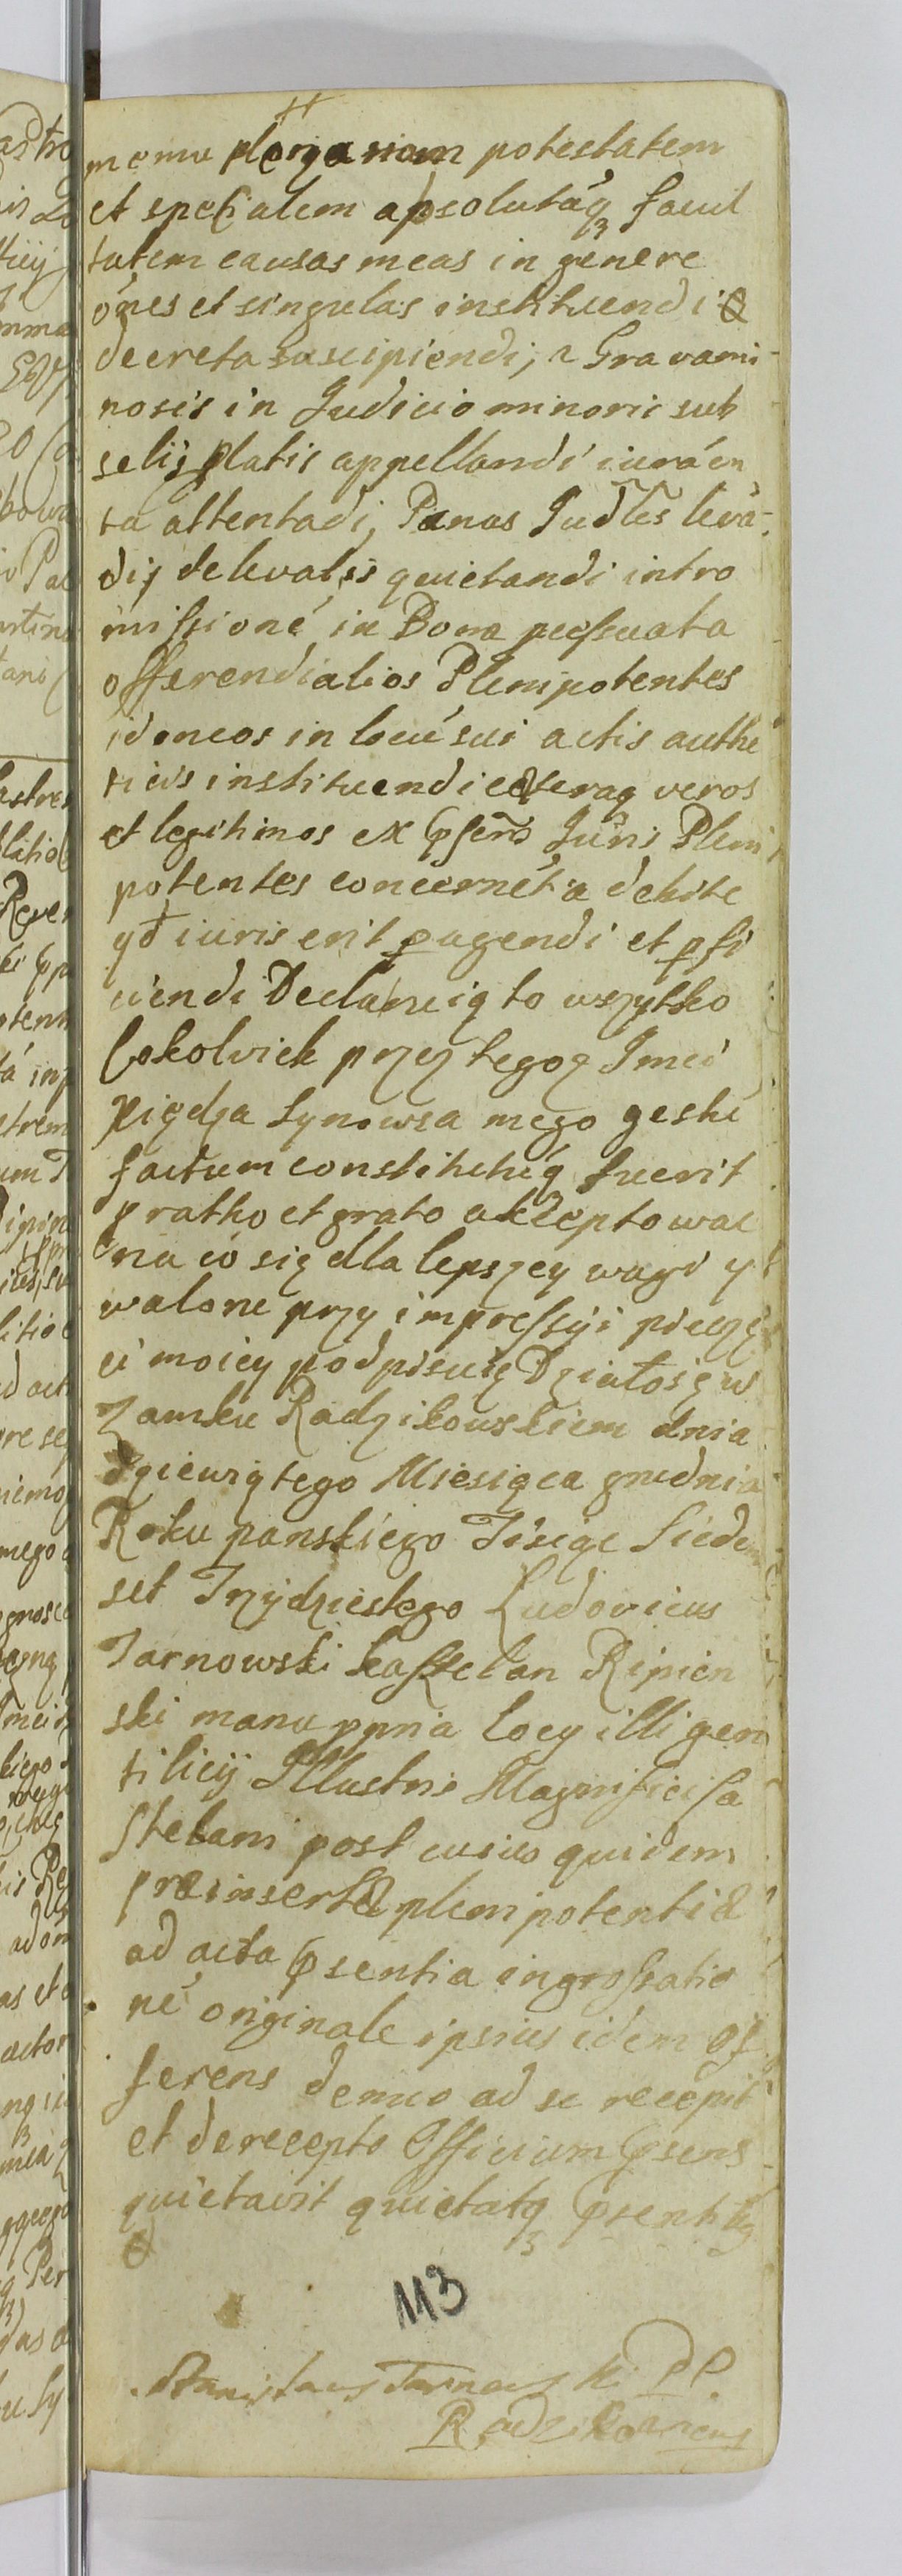 memu plenariam potestatem
et specialem absolutáq facul
tatem causas meas in genere
ones et singulas instituendi &
decreta suscipiendi, a Gravami
nosis in Judicio minoris sub
selij platis appellandi iuráen
ta attentadi, Panas Judles leva
dij delevatis quietandi intro
missioné in Bona
offerendi alios Plenipotentes
idoneos in locú sui actis authe
ticis instituendi ceteraq veros
et legitimos ex psens Juris Pleni
potentes concernét a debite
qd iuris erit pagendi et pfi
ciendi Declaruię to wszytko
Cokolwiek przez tegoz Jmci
Xiędza Synowca mego gesté
factum constitutúq fuerit
gratho et grato akceptowac
na co się dla lepszey wagi y
walore przy impressyi pieczę
ci moiey podpisuię Działosię w
Zamku Radzikowskiem dnia
dziewiątego Miesiąca grudnia
Roku panskiego Tisiąc Siedem
set Trzydziestego Ludovicus
Tarnowski kasztelan Ripien
ski manu ppria locy illi gen
tilicij Illustris Magnifici Ca
stelani post cuius quidem
præinsertæ plenipotentiæ
ad acta psentia ingrossatio
né originale ipsius idem of
ferens denuo ad se recepit
et de recepto Officium psens
quietavit quietatq psentibus
&
113
Stanislaus Tarnowski PC